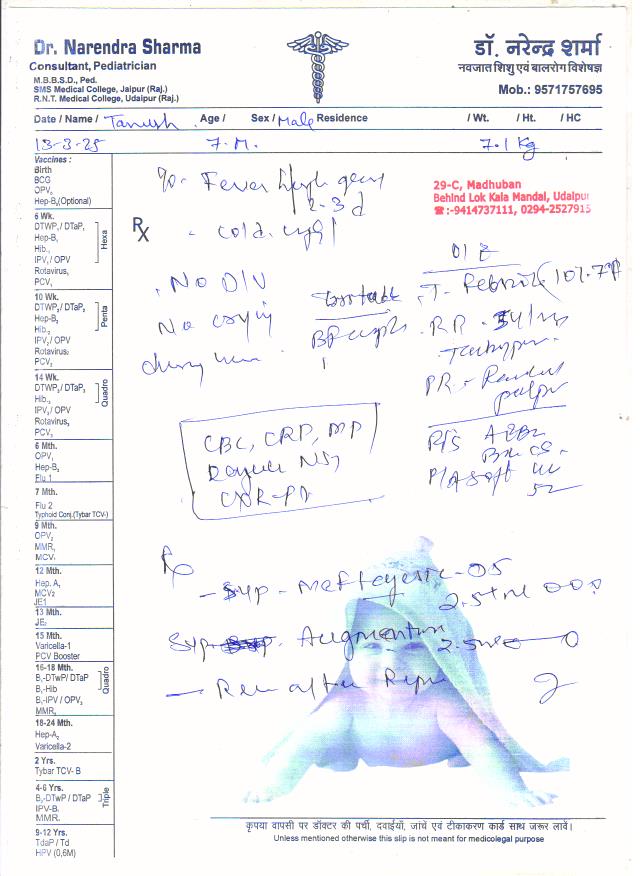 Dr. Narendra Sharma
Consultant, Pediatrician
M.B.B.S.D., Ped.
SMS Medical College, Jaipur (Raj.)
R.N.T. Medical College, Udaipur (Raj.)
डॉ. नरेन्द्र शर्मा
नवजात शिशु एवं बालरोग विशेषज्ञ
Mob.: 9571757695
Date / Name / Tanush Age / Sex / Male Residence / Wt. / Ht. / HC
13-3-25 7.M. 7.1 kg
29-C, Madhuban
Behind Lok Kala Mandal, Udaipur
☎:-9414737111, 0294-2527915
Vaccines :
Birth
BCG
OPV₁
Hep-B₁(Optional)
6 Wk.
DTWP₁/ DTaP₁
Hep-B₁
Hib₁
IPV₁/ OPV
Rotavirus₁
PCV₁
Hexa
10 Wk.
DTWP₂/ DTaP₂
Hep-B₂
Hib₂
IPV₂/ OPV
Rotavirus₂
PCV₂
Penta
14 Wk.
DTWP₃/ DTaP₃
Hib₃
IPV₃/ OPV
Rotavirus₃
PCV₃
Quadro
6 Mth.
OPV₁
Hep-B₃
Flu 1
7 Mth.
Flu 2
Typhoid Conj.(Tybar TCV-)
9 Mth.
OPV₂
MMR₁
MCV₁
12 Mth.
Hep. A₁
MCV₂
JE1
13 Mth.
JE₂
15 Mth.
Varicella-1
PCV Booster
16-18 Mth.
B₁-DTwP/ DTaP
B₁-Hib
B₁-IPV / OPV₃
MMR₂
Quadro
18-24 Mth.
Hep-A₂
Varicella-2
2 Yrs.
Tybar TCV- B
4-6 Yrs.
B₂-DTwP / DTaP
IPV-B₂
MMR₃
Triple
9-12 Yrs.
TdaP / Td
HPV (0,6M)
Fever high
2-3 d
Rx
- cold.
O/E
No
T- Febrile (101.7°F
No crying
RR - 54/
PR -
CBC, CRP, MP
CXR-PA
P/A soft
Rx
- Syp - Meftagesic-DS
2.5 ml
Syp- Augmentin
2.5 ml
- Rev after
कृपया वापसी पर डॉक्टर की पर्ची, दवाईयाँ, जांचें एवं टीकाकरण कार्ड साथ जरूर लावें।
Unless mentioned otherwise this slip is not meant for medicolegal purpose